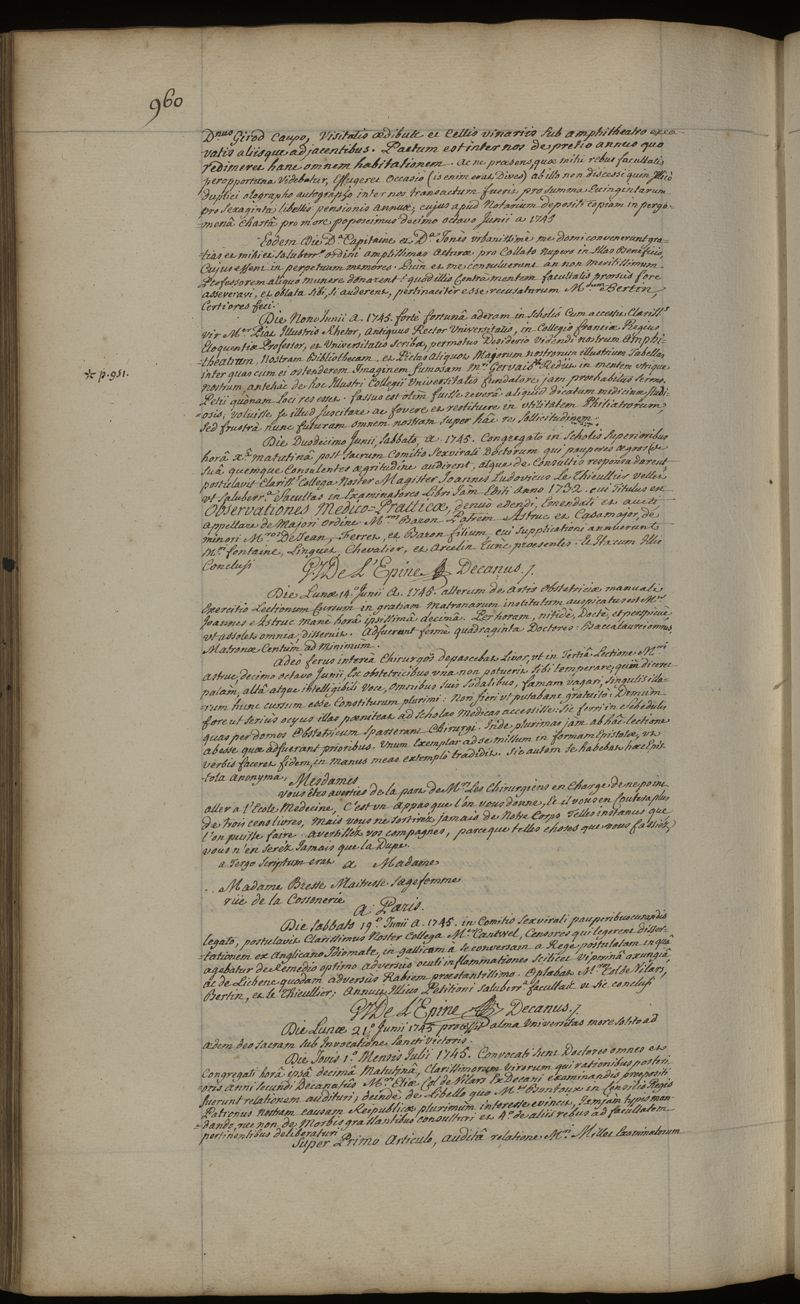 960
Dnus Girod Caupo, Visitatis ædibus et Cellis vinariis sub amphitheatro exca-
vatis aliisque adjacentibus. Pactum est inter nos de pretio annuo quo
redimeret hanc omnem habitationem. Ac ne præsens, quæ mihi rebus facultatis
peropportuna Videbatur, effugeret Occasio (is enim erat Dives) ab illo non discessi quin
duplici olographo autographo inter nos transactum fuerit, pro summa quingentarum
pro sexaginta libellis pensionis annuæ; cujus apud Notarium depositi copiam in perga-
menâ chartâ pro more poposcimus decimo octavo Junii a 1745
Eodem Die Da. Capitaine et Da. Jonés urbanissimè me domi convenerunt gra-
tias et mihi et saluberro. ordini amplissimas acturæ pro Collato nuper in illas Beneficio,
Cujus essent in perpetuum memores. Quin et me consuluerunt an non meritissimum
Professorem aliquo munere donarent: quod illis Contra mentem facultatis prorsus fore
asseveravi, et oblata sibi, si auderent, pertinaciter esse recusaturum Mum Bertin,
Certiores feci.
Die Nonâ Junii A. 1745. fortè fortunâ aderam in scholis Cum accessit Clariss.
vir Mter Piat Illustris Rhetor, Antiquus Rector Universitatis, in Collegio franciæ Regius
Eloquentiæ Professor, et Universitatis Scriba, permotus Desiderio Videndi nostrum Amphi-
theatrum, Nostram Bibliothecam, et Pictas aliquot Magorum nostrorum illustrium Tabellas,
inter quas cum ei ostenderem Imaginem fumosam mri Gervais* Rediit in mentem utrique
* p. 951.
nostrum, antehac de hoc Illustri Collegii Universitatis fundatore, jam præhabitus sermo.
Petii quonam loci res esset. fassus est olim fuisse reverà aliquid dicatum medicinæ studi-
osis; voluisse se illud suscitare ac fovere et restituere in utilitatem Philiatrorum
Sed frustrà nunc futuram omnem nostram super hac re sollicitudinem.
Die Duodecimo Junii, Sabbato, A. 1745. Congregato in Scholis Superioribus
horâ Xa. matutinâ post Sacrum Comitio Sexvirali Doctorum qui pauperes ægros de
suâ quemque Consulentes ægritudine audirent, atque de Consultis responsa darent,
postulavit Clariss. Collega Noster Magister Joannes Ludovicus Le Thieullier vellet
ut saluberra. Facultas in Examinatores Libri Jam Editi anno 1732. cui Titulus est
Observationes Medico-Practicæ, denuo edendi, Emendati et aucti
appellare de Majori Ordine Mros Baron Patrem Astruc et Casamajor, de
minori Mros DeJean, Ferret, et Baron filium, cui supplicationi annuerunt
Mri fontaine, Linguet, Chevalier, et Arcelin tunc præsentes. Et Itacum Illis
Conclusi
G. De L'Epine Decanus.
Die Lunæ 14.a Junii A. 1745. alterum de Artis Obstetriciæ manuali
Exercitio Lectionum Cursum in gratiam Matronarum institutum auspicatus est Mter
Joannes Astruc mane horâ ipsissimâ decimâ. Per horam, nitidè, Doctè, et perspicuè,
ut assolet omnia, disseruit. Adfuerunt fermè quadraginta Doctores: Baccalaurei omnes,
Matronæ Centum ad Minimum.
Adeo ferus intereà Chirurgos depascebat Livor, ut in Tertiâ Lectione Mri
Astruc, decimo octavo Junii, Ex obstetricibus una non potuerit sibi temperare, quin diceret
palam, altâ atque intelligibili Voce, Omnibus suis sodalibus, famam vagari, singulis illa-
rum hunc cursum esse Constiturum plurimi: Non fieri ut putabant gratuitò: Demum
fore ut serius ocyus illas pœniteat ad scholas Medicas accessisse: Sic ferri in schedulis
quas per domos Obstetricum sparserant Chirurgi. Inde plurimæ jam ab hâc Lectione
abesse quæ adfuerant prioribus. Unum Exemplar ad se missum in formam Epistolæ, ut
verbis faceret fidem, in manus meas extemplò tradidit. Sic autem se habebat hæc Epis-
tola anonyma, Mesdames
Vous êtes averties de la part de Mrs Les Chirurgiens en Charge de ne point
aller a l'Ecole Medecine, C'est un appas que l'on vous donne, Et il vous en Coutera plus
de trois cens livres, mais vous ne sortirez jamais de Notre Corps Telles instances que
l'on puisse faire. avertissez vos compagnes, parce que telles choses que vous fassiez,
vous n'en serez Jamais que la Dupe.
a Tergo Scriptum erat a Madame
Madame Bresse Maitresse sagefemme
rüe de la Cossonerie
a Paris.
Die Sabbato 19.a Junii A. 1745. in Comitio Sexvirali pauperibus curandis
legato, postulavit Clarissimus Noster Collega Mter Cantwel, Censores qui legerent disser-
tationem ex Anglicano Idiomate, in gallicum à se conversam a Rege postulatam in quâ
agebatur de Remedio optimo adversùs oculi inflammationes scilicet Viperinâ axungiâ,
ac de Lichene quodam adversùs Rabiem præstantissimo. Optabat Mros Col de Vilars,
Bertin, et Le Thieullier; Annuit Illius Petitioni Saluberra. facultas et sic conclusi
G. De L'Epine Decanus.
Die Lunæ 21.a Junii 1745 processit alma Universitas more solito ad
ædem deo sacram sub Invocatione Sancti Victoris.
Die Jovis 1.a Mensis Julii 1745. Convocati sunt Doctores omnes et
Congregati horâ ipsâ decimâ Matutinâ, Clarissimorum Virorum qui rationibus posteri-
oris Anni secundi Decanatûs Mri Eliæ Col de Vilars ExDecani examinandis præpositi
fuerunt relationem audituri; deinde de Libello quo Mter Bontoux in Consiliis Regis
Patronus nostram causam Reipublicæ plurimum interesse evincit, Jamjam typis man-
dando, nec non de Morbis grassantibus consulturi et 4.o de aliis rebus ad facultatem
pertinentibus deliberaturi
Super Primo Articulo, auditâ relatione Mri Millet Examinatorum